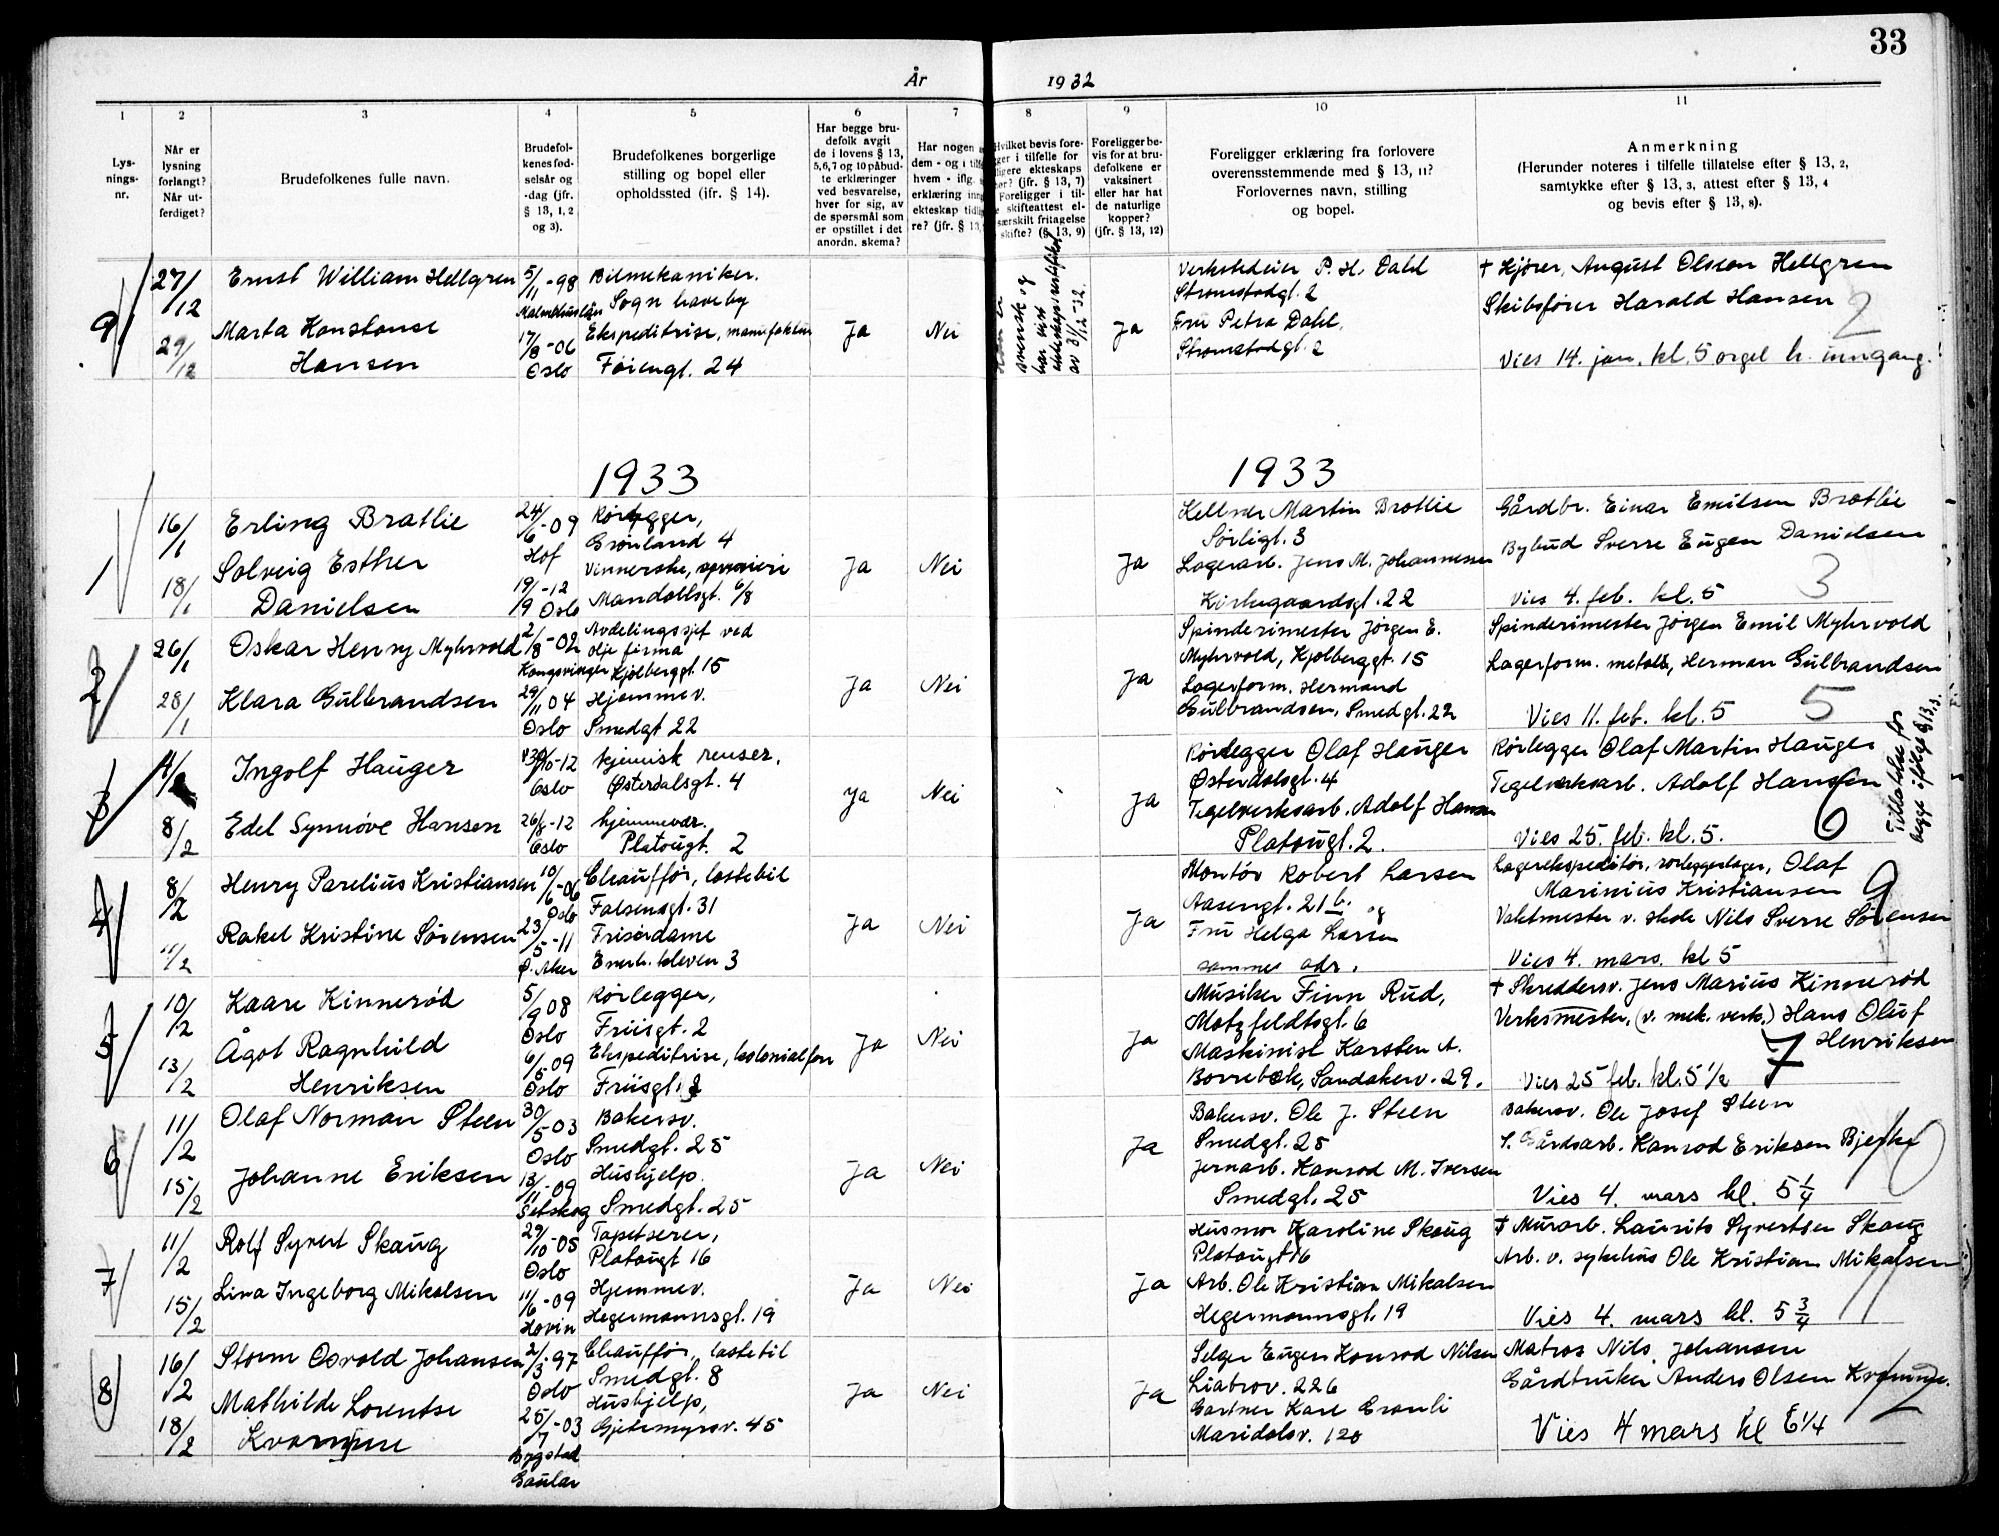 33
År 1932
1
2
3
4
5
6
7
8
9
10
11
Lys-
nings-
nr.
Når er
lysning
forlangt?
Når ut-
ferdiget?
Brudefolkenes fulle navn.
Brudefol-
kenes fød-
selsår og
-dag (jfr.
§ 13, 1, 2
og 3).
Brudefolkenes borgerlige
stilling og bopel eller
opholdssted (ifr. § 14).
Har begge bru-
defolk avgit
de i lovens § 13,
5,6,7 og 10 påbud-
te erklæringer
ved besvarelse,
hver for sig, av
de spørsmål som
er opstillet i det
anordn. skema?
Har nogen
dem - og i
hvem - iflg.
erklæring
ekteskap
re? (jfr. § 13,
Hvilket bevis fore-
i tilfelle for
ekteskaps
(jfr. § 13, 7)
Foreligger i til-
skifteattest el-
særskilt fritagelse
skifte? (§ 13, 9)
Foreligger be-
vis for at bru-
defolkene er
vaksinert
eller har hat
de naturlige
kopper?
(jfr. § 13, 12)
Foreligger erklæring fra forlovere
overensstemmende med § 13, 11?
Forlovernes navn, stilling
og bopel.
Anmerkning
(Herunder noteres i tilfelle tillatelse efter § 13, 2,
samtykke efter § 13, 3, attest efter § 13, 4
og bevis efter § 13, 8).
9
27/12
29/12
Ernst William Hellgren
Marta Konstanse
Hansen
5/11-98
Malmöhuslän
17/8-06
Oslo
Bilmekaniker.
Sogn haveby
Ekspeditrise, manufaktur
Føiengt. 24
Ja
Nei
svensk og
har vist
ekteskapscertifikat
av 31/12-32.
Ja
Verkstedeier P. H. Dahl
Strømstadgt. 2
Fru Petra Dahl,
Strømstadgt. 2
† Kjører, August Olsson Hellgren
Skibsfører Harald Hansen
2
Vies 14. jan. kl. 5 orgel h. inngang.
1933
1933
1
16/1
18/1
Erling Bratlie
Solveig Esther
Danielsen
24/6-09
Hof
19/9-12
Oslo
Rørlegger,
Grønland 4
Vinnerske, spinneri
Mandallsgt. 6/8
Ja
Nei
Ja
Kellner Martin Bratlie
Sørligt. 3
Lagerarb. Jens M. Johannessen
Kirkegaardsgt. 22
Gårdbr. Einar Emilsen Bratlie
Bybud Sverre Eugen Danielsen
3
Vies 4. feb. kl. 5
2
26/1
28/1
Oskar Henry Myhrvold
Klara Gulbrandsen
2/8-02
Kongsvinger
29/11 04
Oslo
Avdelingssjef ved
olje firma
Kjølberggt. 15
Hjemmev.
Smedgt 22
Ja
Nei
Ja
Spinderimester Jørgen E.
Myhrvold, Kjølberggt. 15
Lagerform. Hermand
Gulbrandsen, Smedgt. 22
Spinderimester Jørgen Emil Myhrvold
Lagerform. metall, Herman Gulbrandsen
5
Vies 11. feb. kl. 5
3
8/2
Ingolf Hauger
Edel Synnøve Hansen
Oslo
26/8-12
Oslo
kjemisk renser.
Østerdalsgt. 4
hjemmevær.
Platougt. 2
Ja
Nei
Ja
Rørlegger Olaf Hauger
Østerdalsgt. 4
Teglverksarb. Adolf Hansen
Platougt. 2.
Rørlegger Olaf Martin Hauger
Tegelverksarb. Adolf Hansen
6
Vies 25. feb. kl. 5.
Tillatelse for
begge ifølge § 13.3.
4
8/2
11/2
Henry Parelius Kristiansen
Rakel Kristine Sørensen
10/6-06
Oslo
23/5-11
Ø. Aker
Chauffør, lastebil
Falsensgt. 31
Friserdame
Enerh. kleven 3
Ja
Nei
Ja
Montør Robert Larsen
Aasengt. 21 b. og
Fru Helga Larsen
samme adr.
Lagerekspeditør, rørleggerlager, Olaf
Marinius Kristiansen
9
Vaktmester v. skole Nils Sverre Sørensen
Vies 4. mars. kl 5
5
10/2
13/2
Kaare Kinnerød
Ågot Ragnhild
Henriksen
5/9 08
Oslo
6/5-09
Oslo
Rørlegger,
Friisgt. 2
Ekspeditrise, kolonialforr
Friisgt. 2
Ja
Nei
Ja
Musiker Finn Rud,
Motzfeldtsgt. 6
Maskinist Karsten A.
Borrebæk, Sandakerv. 29.
† Skreddersv. Jens Marius Kinnerød
Verksmester, (v. mek. verk.) Hans Oluf
Henriksen
7
Vies 25 feb. kl. 5 1/2
6
11/2
15/2
Olaf Norman Steen
Johanne Eriksen
30/5-03
Oslo
13/11-09
Setskog
Bakersv.
Smedgt. 25
Hushjelp.
Smedgt. 25
Ja
Nei
Ja
Bakersv. Ole J. Steen
Smedgt. 25
Jernarb. Konrad M. Iversen
Smedgt. 25
Bakersv. Ole Josef Steen
Gårdsarb. Konrad Eriksen Bjerke
10
Vies 4. mars kl. 5 1/4
7
11/2
15/2
Rolf Syvert Skaug
Lina Ingeborg Mikalsen
29/10-05
Oslo
11/6-09
Hovin
Tapetserer,
Platougt 16
Hjemmev.
Hegermannsgt. 19
Ja
Nei
Ja
Husmor Karoline Skaug
Platougt 16
Arb. Ole Kristian Mikalsen
Hegermannsgt. 19
† Murarb. Laurits Syvertsen Skaug
Arb. v. sykehus Ole Kristian Mikalsen
11
Vies 4. mars kl. 5 3/4
8
16/2
18/2
Storm Osvald Johansen
Mathilde Lorentse
2/3-97
Oslo
25/7-03
Bygstad
Gaular
Chauffør, lastebil
Smedgt. 8
Hushjelp,
Gjetemyrsv. 45
Ja
Nei
Ja
Selger Eugen Konrad Nilsen
Liabrov. 226
Gartner Kåre Granli
Maridalsv. 120
Matros Nils Johansen
Gårdbruker Anders Olsen
12
Vies 4 mars kl 6 1/4